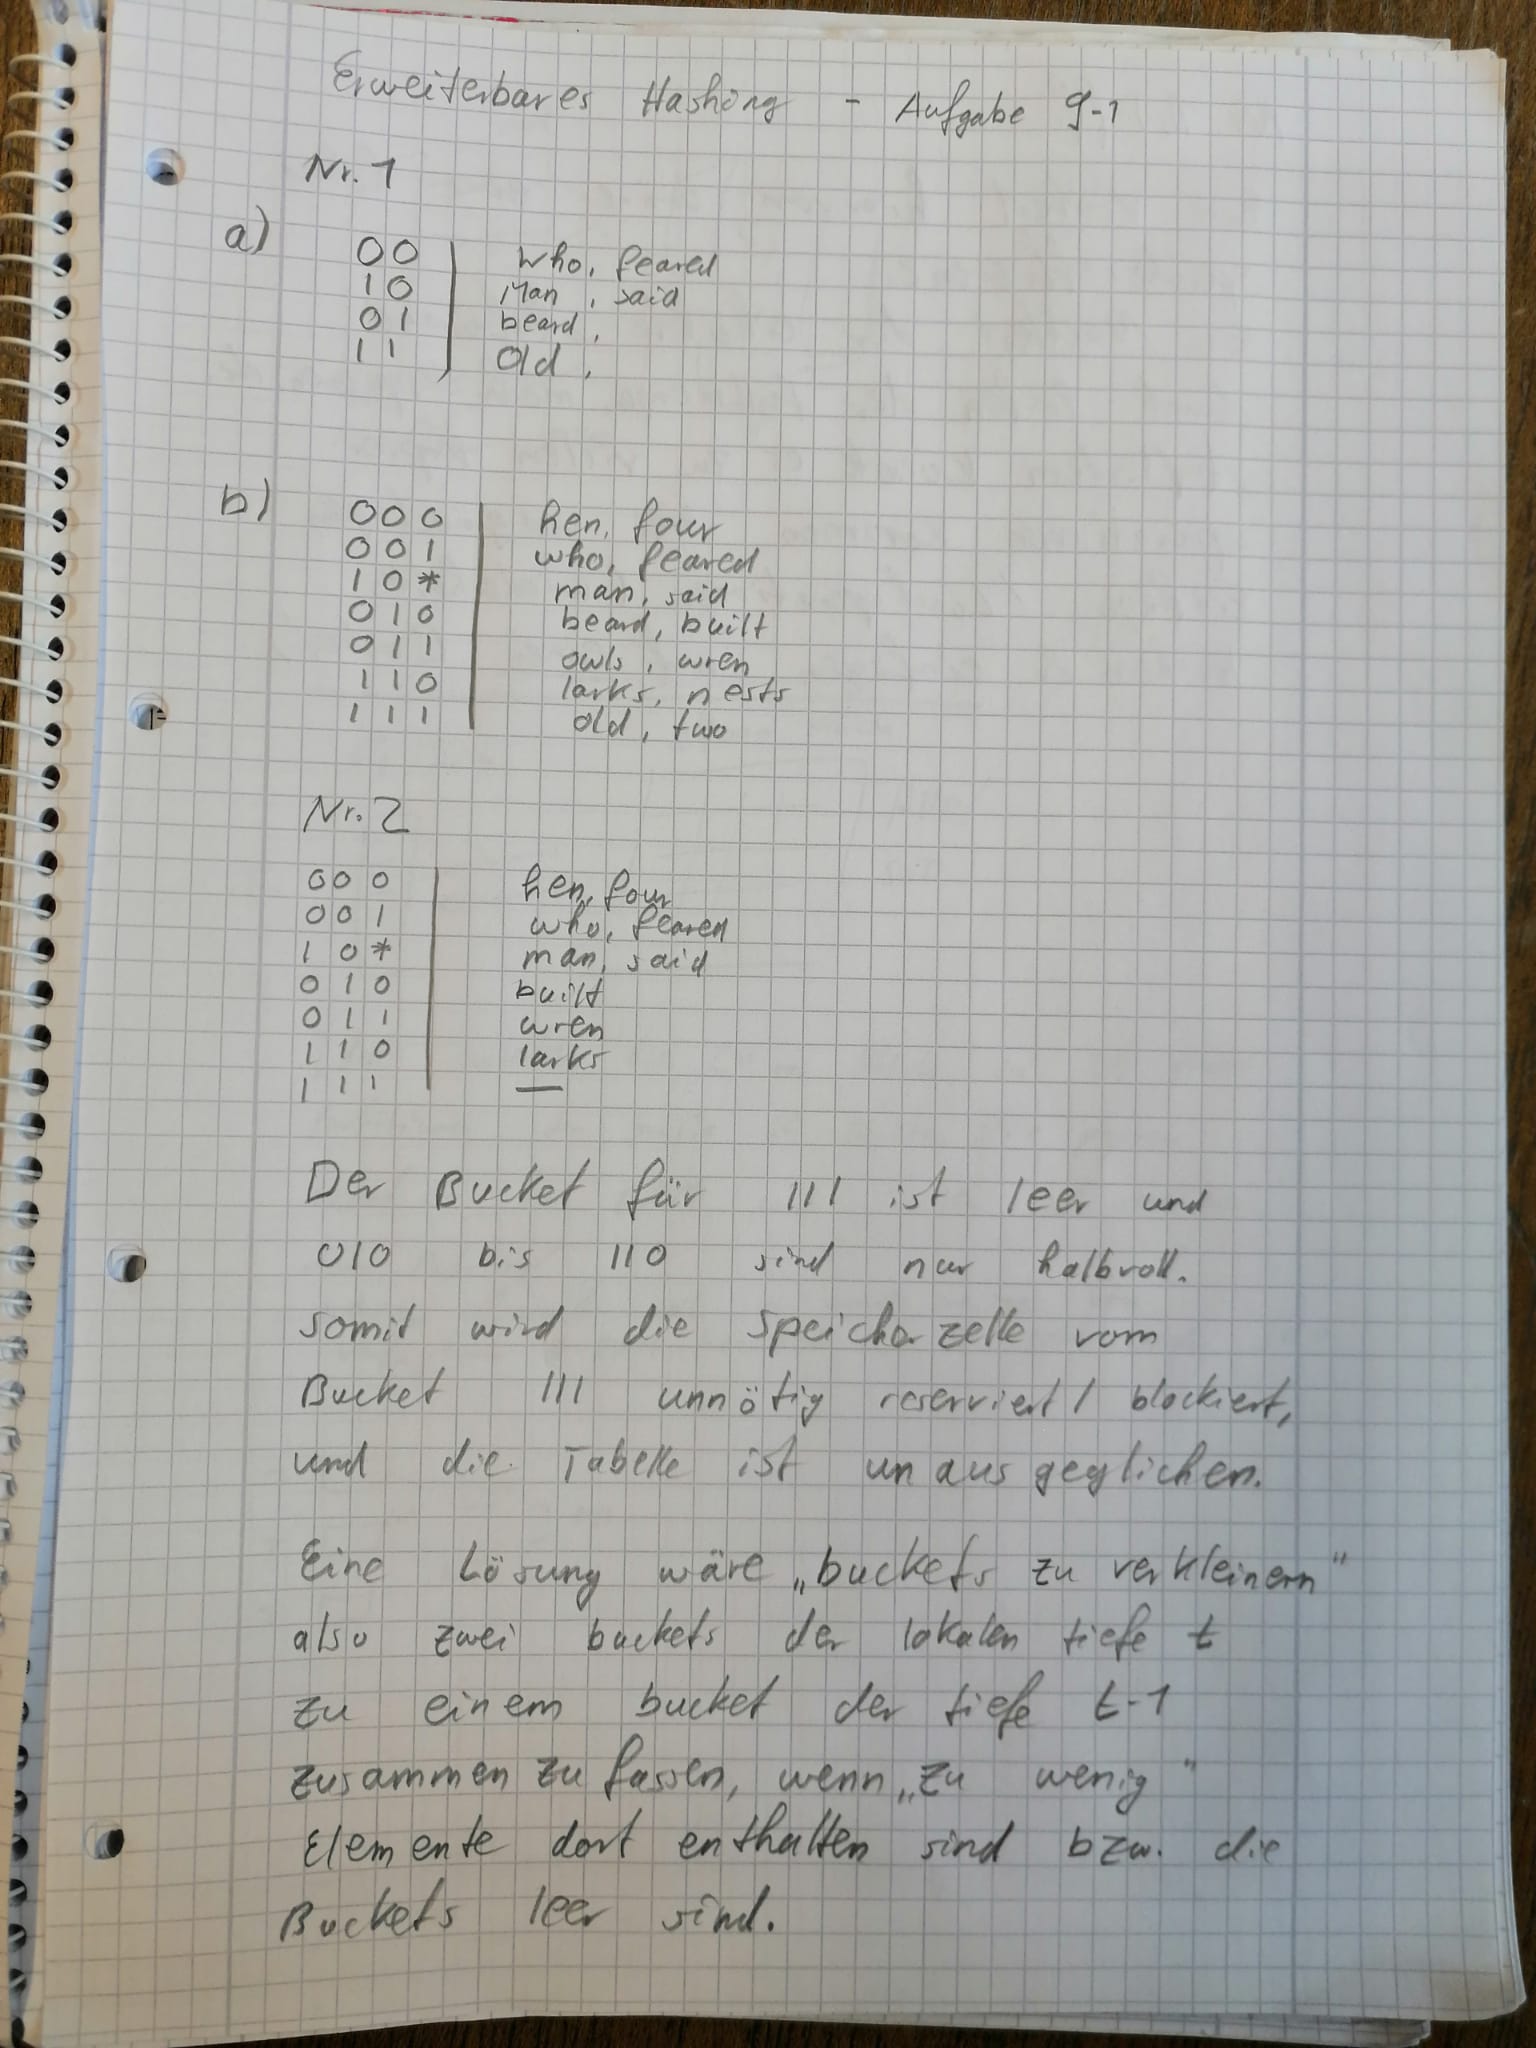 Erweiterbares Hashing - Aufgabe 9-1
Nr. 1
a)
00 | who, feared
10 | Man, said
01 | beard,
11 | Old,
b)
000 | hen, four
001 | who, feared
10* | man, said
010 | beard, built
011 | owls, wren
110 | larks, nests
111 | old, two
Nr. 2
000 | hen, four
001 | who, feared
10* | man, said
010 | built
011 | wren
110 | larks
111 | —
Der Bucket für 111 ist leer und
010 bis 110 sind nur halbvoll.
somit wird die Speicherzelle vom
Bucket 111 unnötig reserviert / blockiert,
und die Tabelle ist unausgeglichen.
Eine Lösung wäre „buckets zu verkleinern"
also zwei buckets der lokalen tiefe t
zu einem bucket der tiefe t-1
zusammen zu fassen, wenn „zu wenig"
Elemente dort enthalten sind bzw. die
Buckets leer sind.